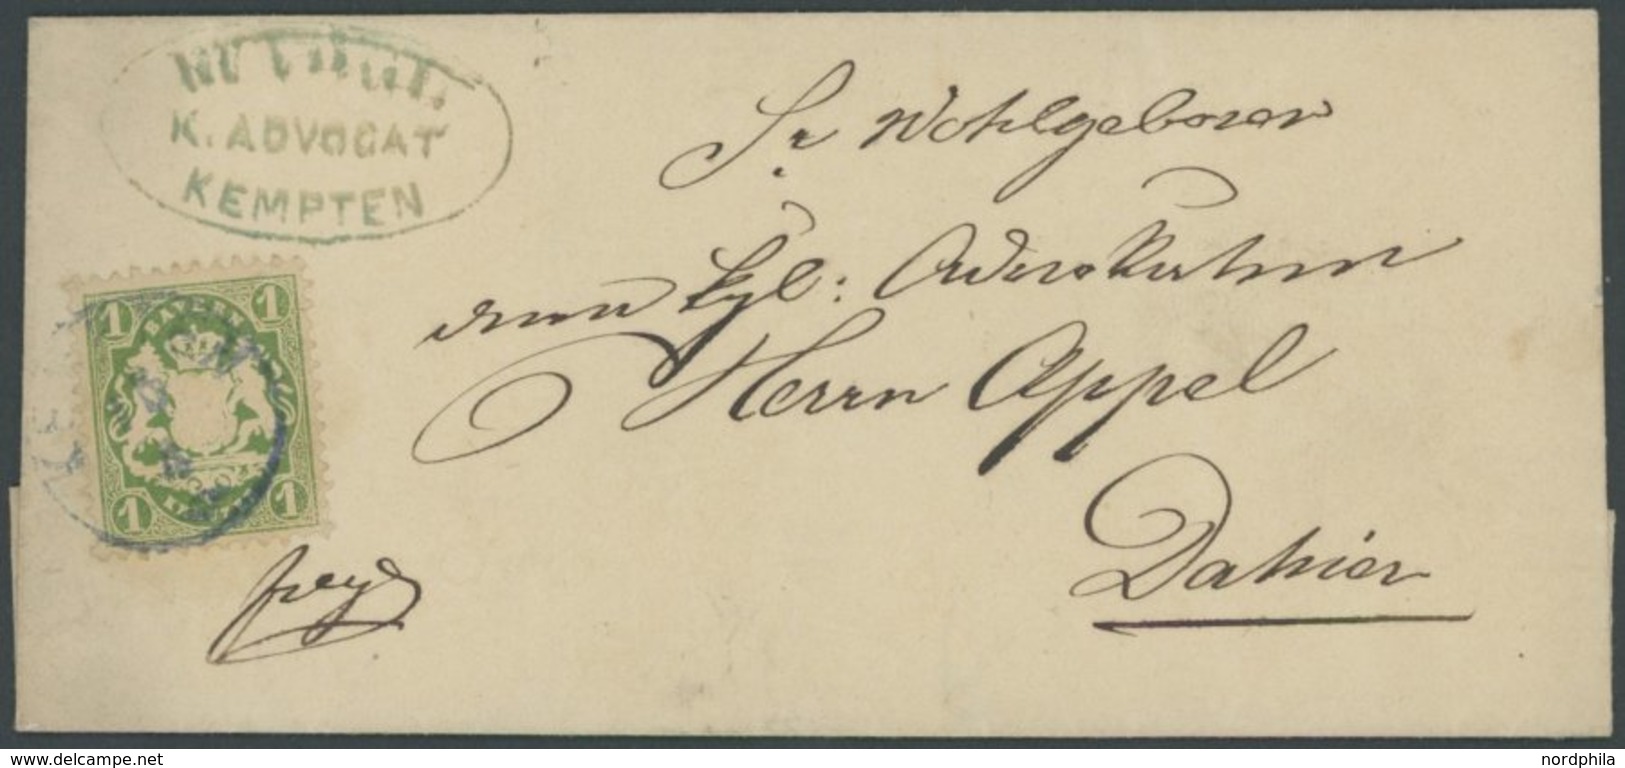 K. ADVOCAT
KEMPTEN
Sr Wohlgeboren
dem kgl: Advokaten
Herrn Appel
Dahier
1 BAYERN 1
1 1
www.delcampe.net
nordphila